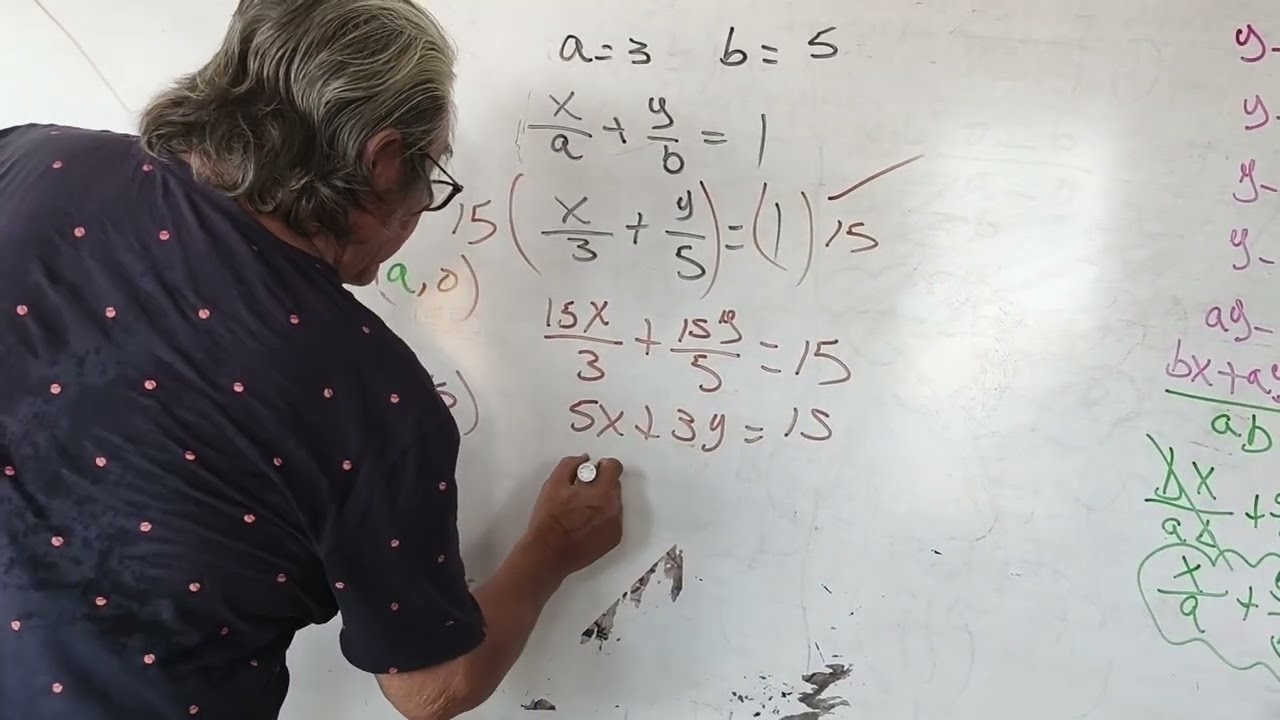 a = 3 b = 5
x/a + y/b = 1
15 ( x/3 + y/5 ) = (1) 15
a, 0)
15x/3 + 15y/5 = 15
5)
5x + 3y = 15
y-
y-
y-
y-
ay-
bx + ay
ab
bx/ab +
x/a +